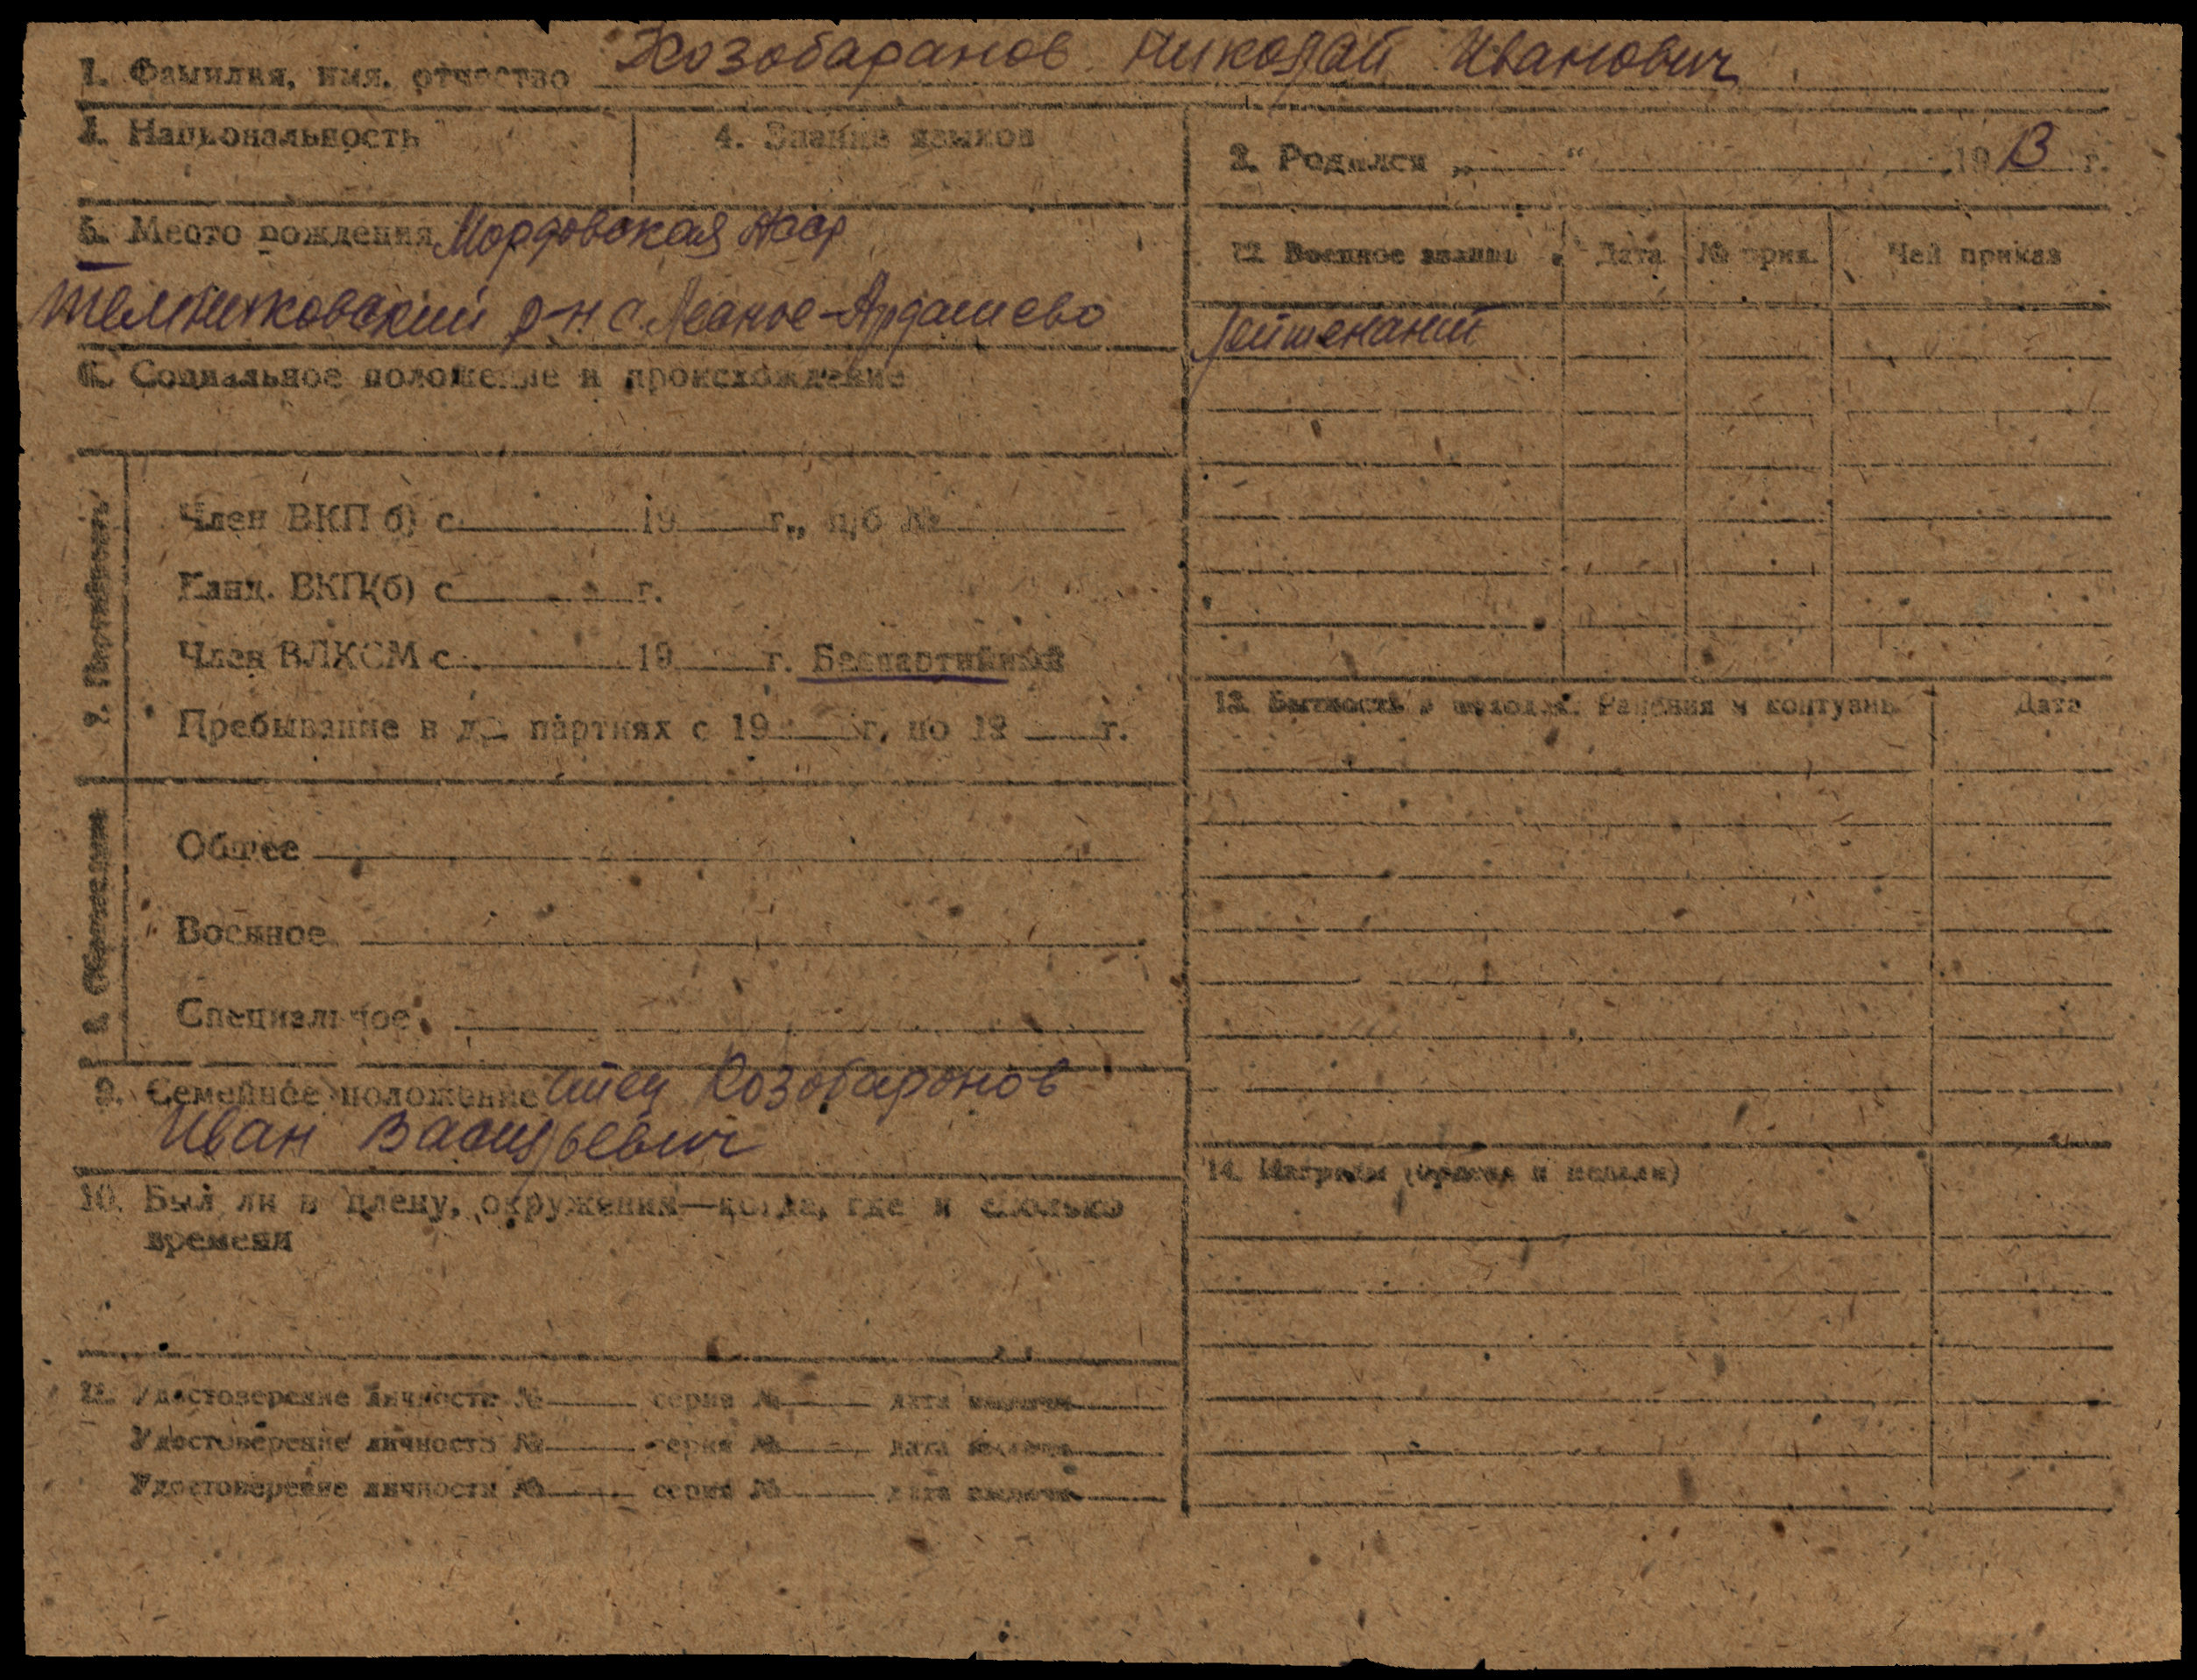 1. Фамилия, имя, отчество Козобаранов Николай Иванович
3. Национальность
4. Знание языков
2. Родился „ “ 1913 г.
5. Место рождения Мордовская Асср
Темниковский р-н с. Лесное-Ардашево
6. Социальное положение и происхождение
7. Партийность
Член ВКП б) с 19 г., п/б №
Канд. ВКП(б) с г.
Член ВЛКСМ с 19 г. Беспартийный
Пребывание в др. партиях с 19 г. по 19 г.
8. Образование
Общее
Военное
Специальное
9. Семейное положение отец Козобаронов
Иван Васильевич
10. Был ли в плену, окружении—когда, где и сколько
времени
11. Удостоверение личности № серия № дата выдачи
Удостоверение личности № серия № дата выдачи
Удостоверение личности № серия № дата выдачи
12. Военное звание Дата № прик. Чей приказ
Лейтенант
13. Бытность в походах. Ранения и контузии Дата
14. Награды (ордена и медали)